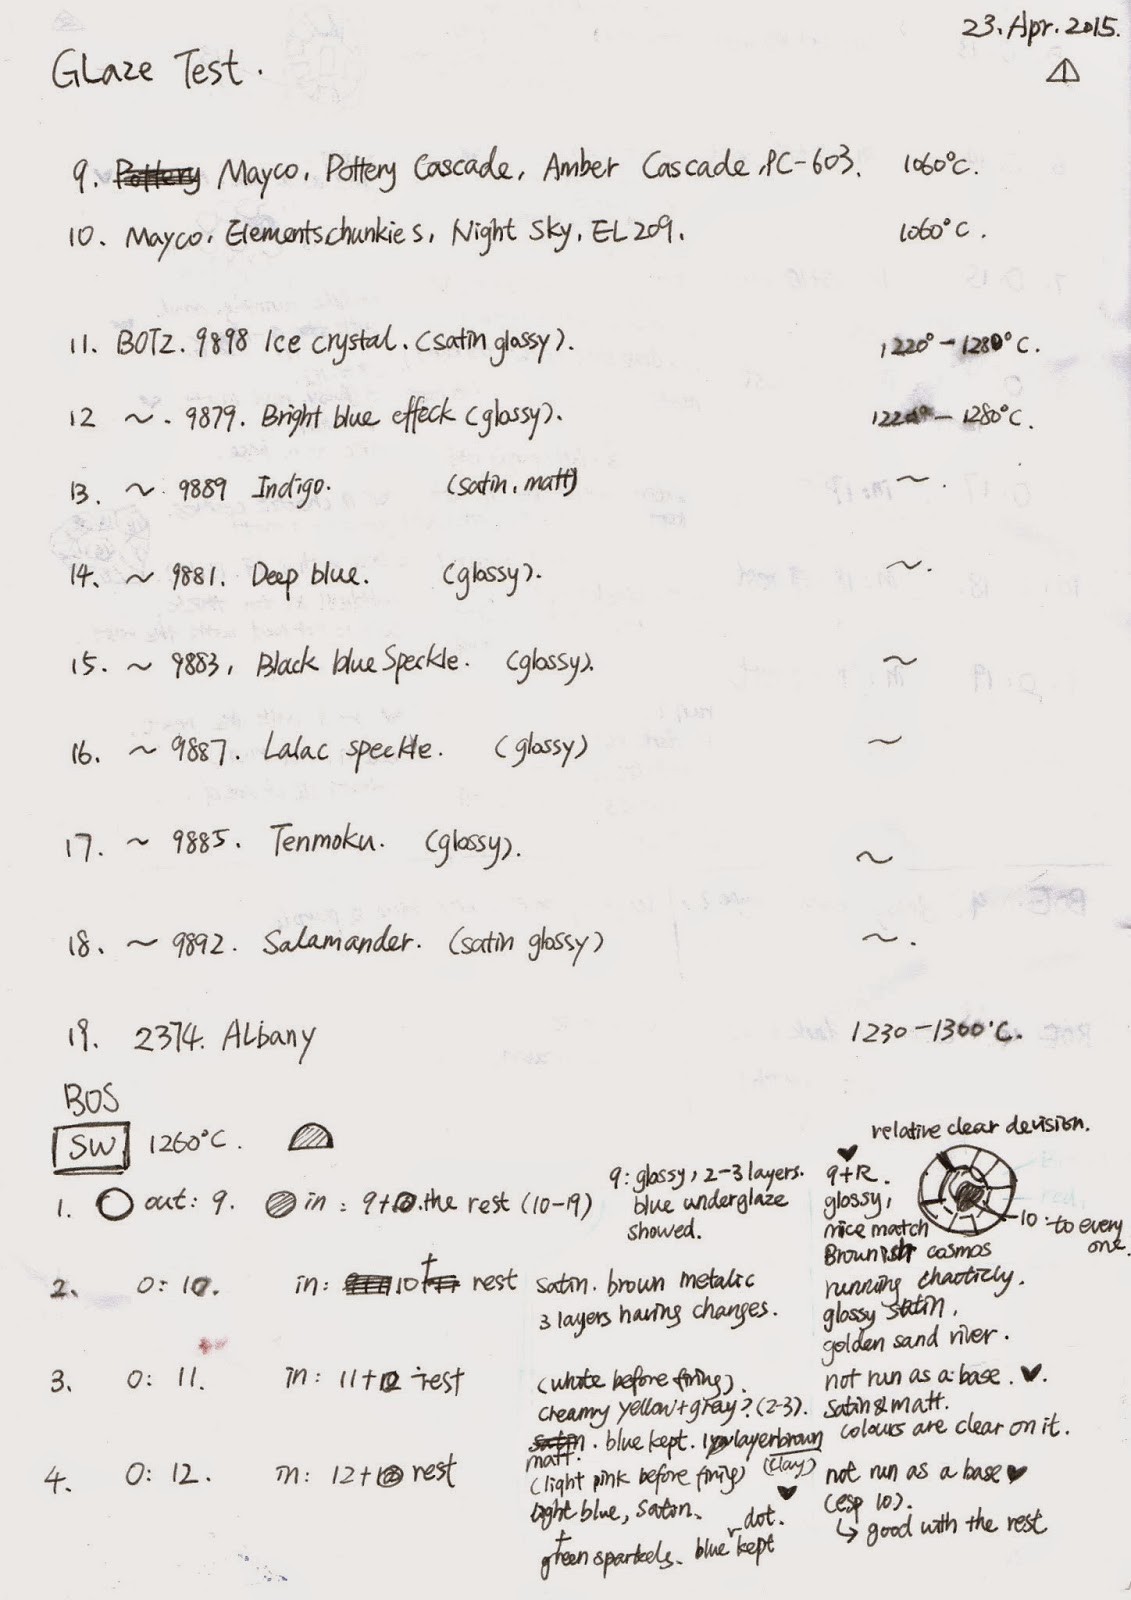 23. Apr. 2015.
GLaze Test.
1
9. Pottery Mayco, Pottery Cascade, Amber Cascade, PC-603. 1060°C.
10. Mayco, Elementschunkies, Night Sky, EL209. 1060°C.
11. BOTZ. 9898 Ice crystal. (satin glossy). 1220°-1280°C.
12 ~. 9879. Bright blue effeck (glossy). 1220°-1280°C.
13. ~. 9889 Indigo. (satin, matt) ~.
14. ~ 9881. Deep blue. (glossy). ~.
15. ~ 9883, Black blue Speckle. (glossy). ~
16. ~ 9887. Lalac speckle. (glossy) ~
17. ~ 9885. Tenmoku. (glossy). ~
18. ~ 9892. Salamander. (satin glossy) ~.
19. 2374. Albany 1230-1300°C.
BOS
SW 1260°C.
relative clear devision.
1. out: 9. in: 9+ the rest (10-19)
9: glossy, 2-3 layers.
blue underglaze
showed.
9+R.
glossy,
nice match
10: to every
one.
2. O: 10. in: 10+ rest
satin. brown metalic
3 layers having changes.
Brownish cosmos
running chaoticly.
glossy satin.
golden sand river.
3. O: 11. in: 11+ rest
(white before firing).
creamy yellow+gray? (2-3).
satin. blue kept. 1 layer brown
matt. (clay)
not run as a base. ♥.
satin&matt.
colours are clear on it.
4. O: 12. in: 12+ rest
(light pink before firing)
light blue, satin.
+ dot. ♥
green sparkels. blue kept
not run as a base ♥
(esp 10).
↳ good with the rest